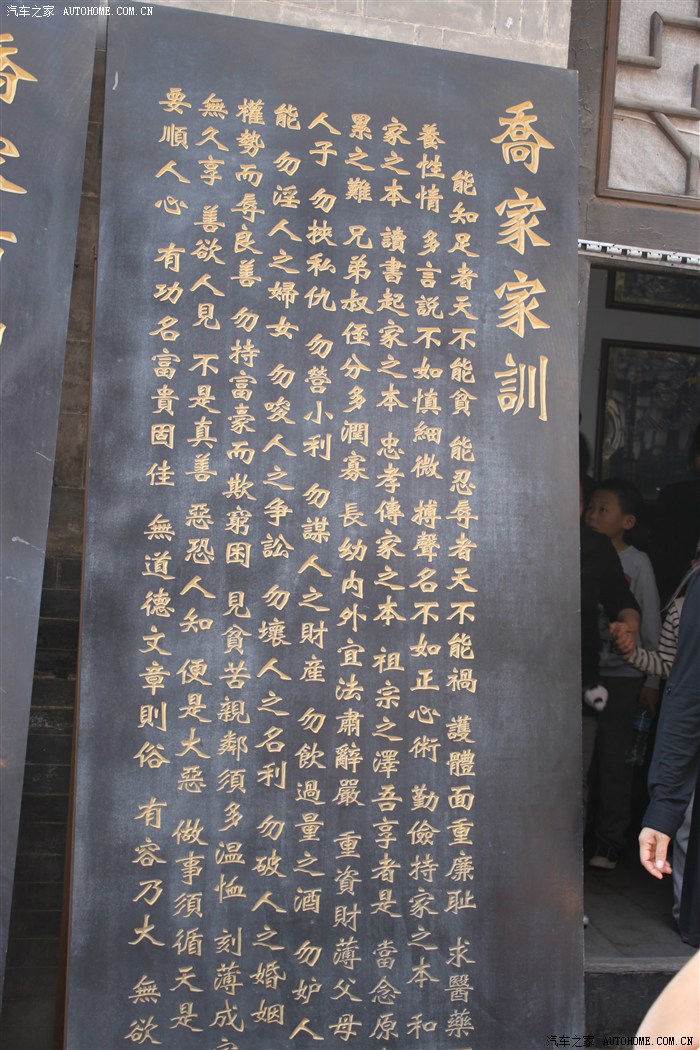 汽车之家 AUTOHOME.COM.CN
喬家家訓
能知足者天不能貧 能忍辱者天不能禍 護體面重廉耻 求醫藥
養性情 多言說不如慎細微 搏聲名不如正心術 勤儉持家之本 和
家之本 讀書起家之本 忠孝傳家之本 祖宗之澤吾享者是 當念原
累之難 兄弟叔侄分多潤寡 長幼內外宜法肅辭嚴 重資財薄父母
人子 勿挾私仇 勿營小利 勿謀人之財產 勿飲過量之酒 勿妒人
能 勿淫人之婦女 勿唆人之爭訟 勿壞人之名利 勿破人之婚姻
權勢而辱良善 勿持富豪而欺窮困 見貧苦親鄰須多温恤 刻薄成
無久享 善欲人見 不是真善 惡恐人知 便是大惡 做事須循天是
要順人心 有功名富貴固佳 無道德文章則俗 有容乃大 無欲
喬
家
汽车之家 AUTOHOME.COM.CN